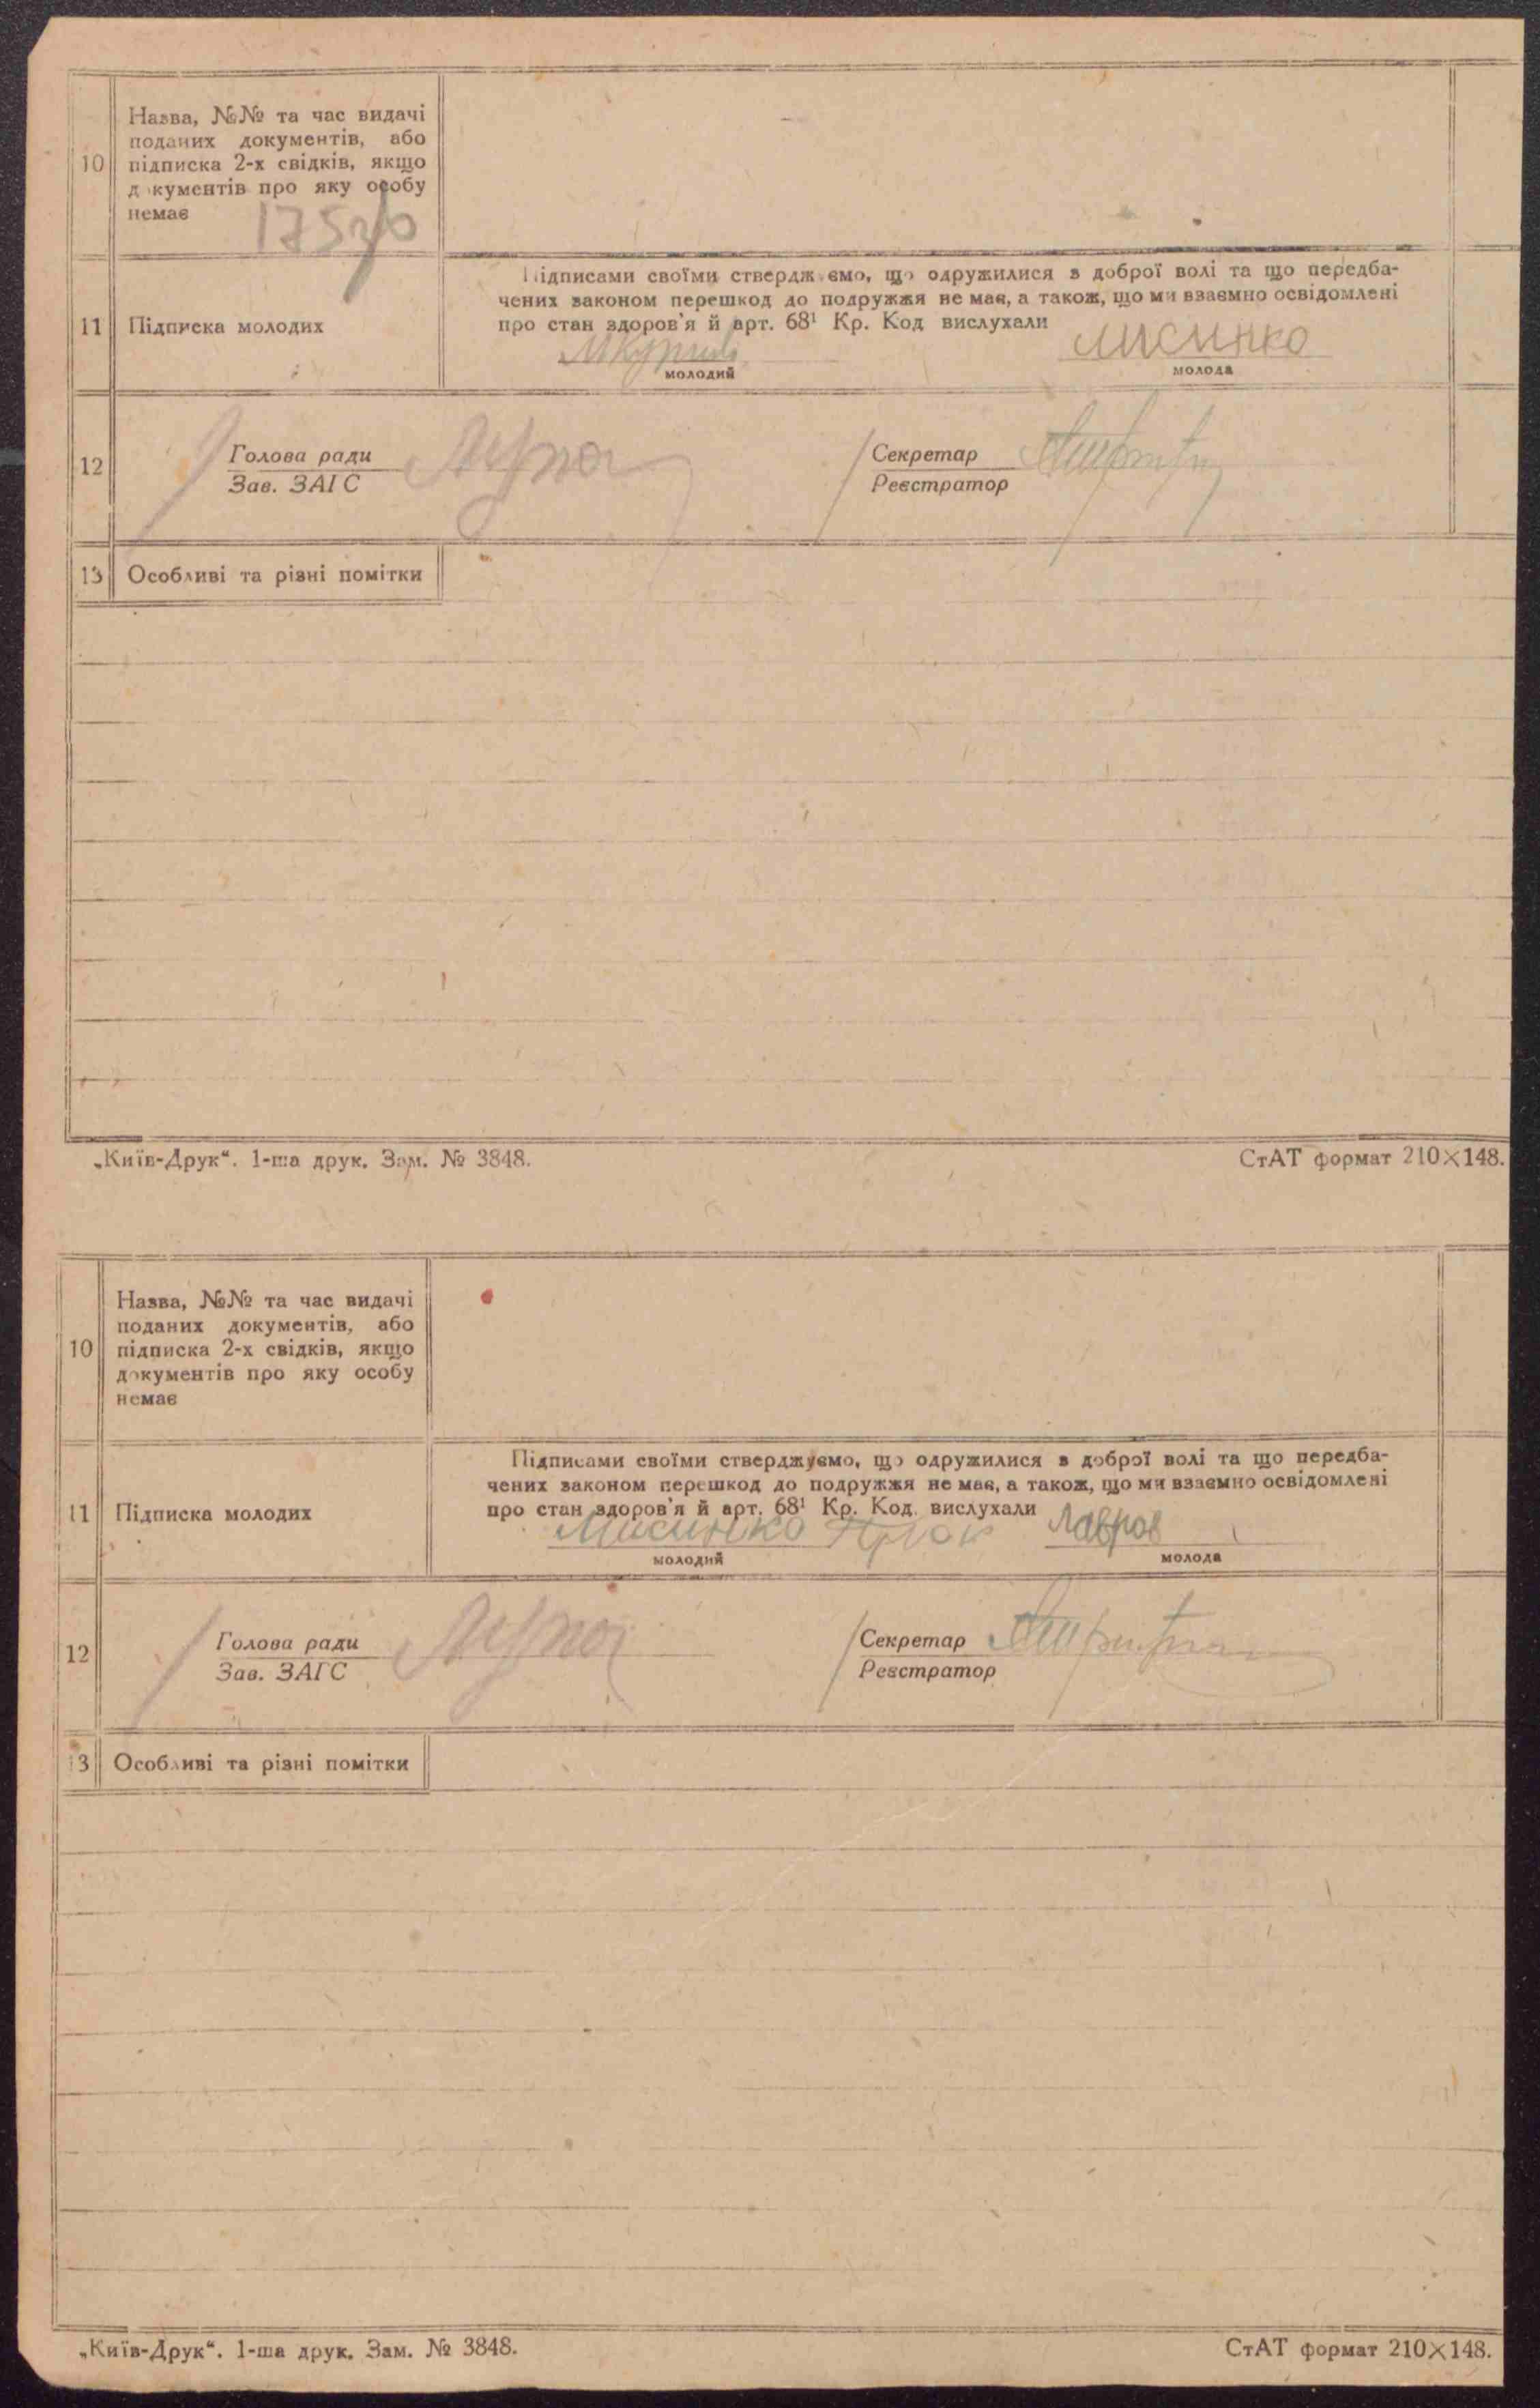 10
Назва, №№ та час видачі
поданих документів, або
підписка 2-х свідків, якщо
д кументів про яку особу
немає
11
Підписка молодих
Підписами своїми стверджуємо, що одружилися з доброї волі та що передба-
чених законом перешкод до подружжя не має, а також, що ми взаємно освідомлені
про стан здоров'я й арт. 68¹ Кр. Код вислухали
лисинко
молодий
молода
12
Голова ради
Зав. ЗАГС
Секретар
Реєстратор
13
Особливі та різні помітки
„Київ-Друк“. 1-ша друк. Зам. № 3848.
СтАТ формат 210×148.
10
Назва, №№ та час видачі
поданих документів, або
підписка 2-х свідків, якщо
документів про яку особу
немає
11
Підписка молодих
Підписами своїми стверджуємо, що одружилися з доброї волі та що передба-
чених законом перешкод до подружжя не має, а також, що ми взаємно освідомлені
про стан здоров'я й арт. 68¹ Кр. Код. вислухали
Лавров
молодий
молода
12
Голова ради
Зав. ЗАГС
Секретар
Реєстратор
13
Особливі та різні помітки
„Київ-Друк“. 1-ша друк. Зам. № 3848.
СтАТ формат 210×148.